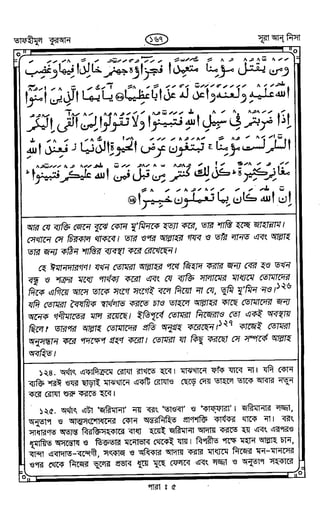 তাফহীমুল কুরআন
১৬৭
সূরা আন্ নিসা
وَمَنْ يَّقْتُلْ مُؤْمِنًا مُّتَعَمِّدًا فَجَزَاؤُهٗ جَهَنَّمُ خَالِدًا فِيْهَا وَغَضِبَ
اللّٰهُ عَلَيْهِ وَلَعَنَهٗ وَاَعَدَّ لَهٗ عَذَابًا عَظِيْمًا ۝ يٰۤاَيُّهَا الَّذِيْنَ اٰمَنُوْۤا
اِذَا ضَرَبْتُمْ فِيْ سَبِيْلِ اللّٰهِ فَتَبَيَّنُوْا وَلَا تَقُوْلُوْا لِمَنْ اَلْقٰۤى اِلَيْكُمُ
السَّلٰمَ لَسْتَ مُؤْمِنًا ۚ تَبْتَغُوْنَ عَرَضَ الْحَيٰوةِ الدُّنْيَا ۫ فَعِنْدَ اللّٰهِ
مَغَانِمُ كَثِيْرَةٌ ؕ كَذٰلِكَ كُنْتُمْ مِّنْ قَبْلُ فَمَنَّ اللّٰهُ عَلَيْكُمْ فَتَبَيَّنُوْا ؕ
اِنَّ اللّٰهَ كَانَ بِمَا تَعْمَلُوْنَ خَبِيْرًا ۝
আর যে ব্যক্তি জেনে বুঝে কোন মু'মিনকে হত্যা করে, তার শাস্তি হচ্ছে জাহান্নাম।
সেখানে সে চিরকাল থাকবে। তার ওপর আল্লাহর গযব ও তাঁর লানত এবং আল্লাহ
তার জন্য কঠিন শাস্তির ব্যবস্থা করে রেখেছেন।
হে ঈমানদারগণ! যখন তোমরা আল্লাহর পথে জিহাদ করার জন্য বের হও তখন
বন্ধু ও শত্রুর মধ্যে পার্থক্য করো এবং যে ব্যক্তি সালামের মাধ্যমে তোমাদের
দিকে এগিয়ে আসে তাকে সংগে সংগেই বলে দিয়ো না যে, তুমি মু'মিন নও।১২৬
যদি তোমরা বৈষয়িক স্বার্থলাভ করতে চাও তাহলে আল্লাহর কাছে তোমাদের জন্য
অনেক গনীমাতের মাল রয়েছে। ইতিপূর্বে তোমরা নিজেরাও তো একই অবস্থায়
ছিলে। তারপর আল্লাহ তোমাদের প্রতি অনুগ্রহ করেছেন।১২৭ কাজেই তোমরা
অনুসন্ধান করে পদক্ষেপ গ্রহণ করো। তোমরা যা কিছু করছো সে সম্পর্কে আল্লাহ
অবহিত।
১২৪. অর্থাৎ একাদিক্রমে রোযা রাখতে হবে। মাঝখানে ফাঁক যাবে না। যদি কোন
ব্যক্তি শরঈ ওযর ছাড়াই মাঝখানে একটি রোযাও ছেড়ে দেয় তাহলে তাকে আবার নতুন
করে রোযা শুরু করতে হবে।
১২৫. অর্থাৎ এটা 'জরিমানা' নয় বরং 'তাওবা' ও 'কাফ্‌ফারা'। জরিমানার লজ্জা,
অনুতাপ ও আত্মসংশোধনের কোন অন্তরনিহিত প্রাণশক্তি কার্যকর থাকে না। বরং
সাধারণত অত্যন্ত বিরক্তিসহকারে বাধ্য হয়েই জরিমানা আদায় করতে হয় এবং এরপরও
ধূমায়িত অসন্তোষ ও তিক্ততার মনোভাব থেকেই যায়। বিপরীত পক্ষে মহান আল্লাহ চান,
বান্দা এবাদাত-বন্দেগী, সৎকাজ ও অধিকার আদায় করার মাধ্যমে নিজের মন-মানসের
ওপর থেকে নিজের ভুলের প্রভাব ধুয়ে মুছে ফেলবে এবং লজ্জা ও অনুতাপ সহকারে
পারা : ৫